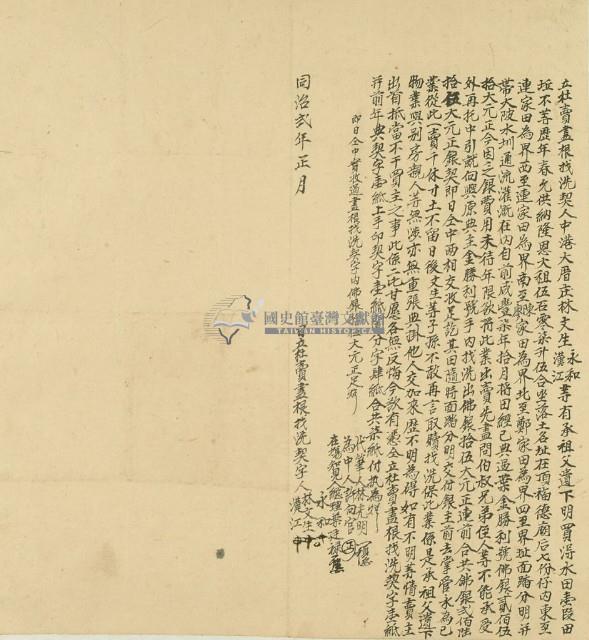 立杜賣盡根找洗契人中港大厝庄林文生永和漢江等有承祖父遺下明買淂水田壹段田
坵不等歷年春允供納隆恩大租伍石零柒升伍合坐落土名址在頂福德廟后七份仔內東至
連家田為界西至連家田為界南至陳家田為界北至鄭家田為界四至界址面踏分明并
帶大陂水圳通流灌溉在內自前咸豐柒年拾月將田經已典過葉金勝利號佛銀貳佰伍
拾大元正今因乏銀費用未待年限欲將此業出賣先盡問伯叔兄弟侄人等不能承受
外再托中引就向與原典主金勝利號手內找洗出佛銀拾伍大元正連前合共佛銀貳佰陸
拾伍大元正銀契即日仝中兩相交收足訖其田隨時面踏分明交付銀主前去掌管永為己
業從此一賣千休寸土不留日後文生等子孫不敢再言取贖找洗保此業係是承祖父遺
物業與別房親人等無涉亦無重張典掛他人交加來歷不明為碍如有不明等情賣主
出首抵當不干買主之事此係二比甘愿各無反悔今欲有憑仝立杜賣盡根找洗契字壹紙
并前年典契字壹紙上手印契字壹紙鬮分字肆紙合共柒紙付執為炤
即日仝中實收過盡根找洗契字內佛銀 大元正足炤
代筆人林光明
為中人許向官
在場見總理葉廷祿
同治貳年正月 日立杜賣盡根找洗契字人林文生永和漢江
國史館臺灣文獻館
TAIWAN HISTORICA